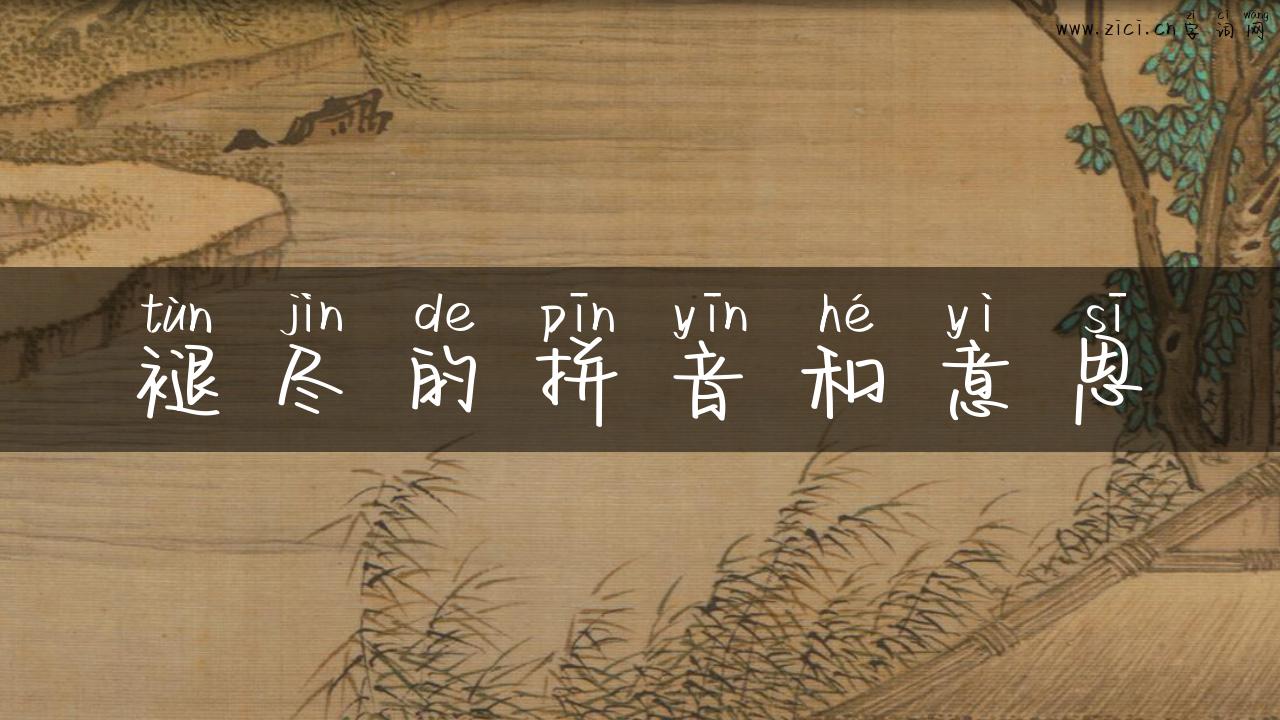 zì cí wǎng
www.zici.cn字词网
tùn jìn de pīn yīn hé yì sī
褪尽的拼音和意思